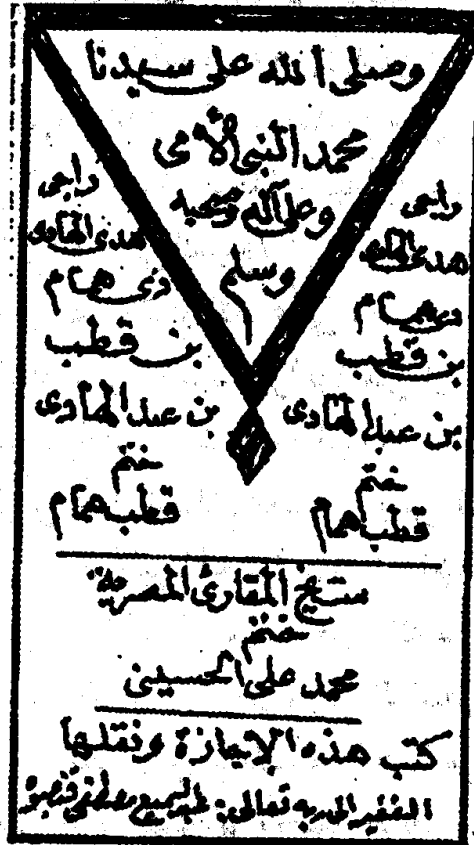 وصلى الله على سيدنا
محمد النبي الأمي
وعلى آله وصحبه
وسلم
راجى
هدى الهادى
ذى همام
بن قطب
بن عبد الهادى
ختم
قطب همام
راجى
هدى الهادى
ذى همام
بن قطب
بن عبد الهادى
ختم
قطب همام
شيخ المقارئ المصرية
ختم
محمد على الحسينى
كتب هذه الإجازة ونقلها
الفقير إلى ربه تعالى: عبد السميع مصطفى